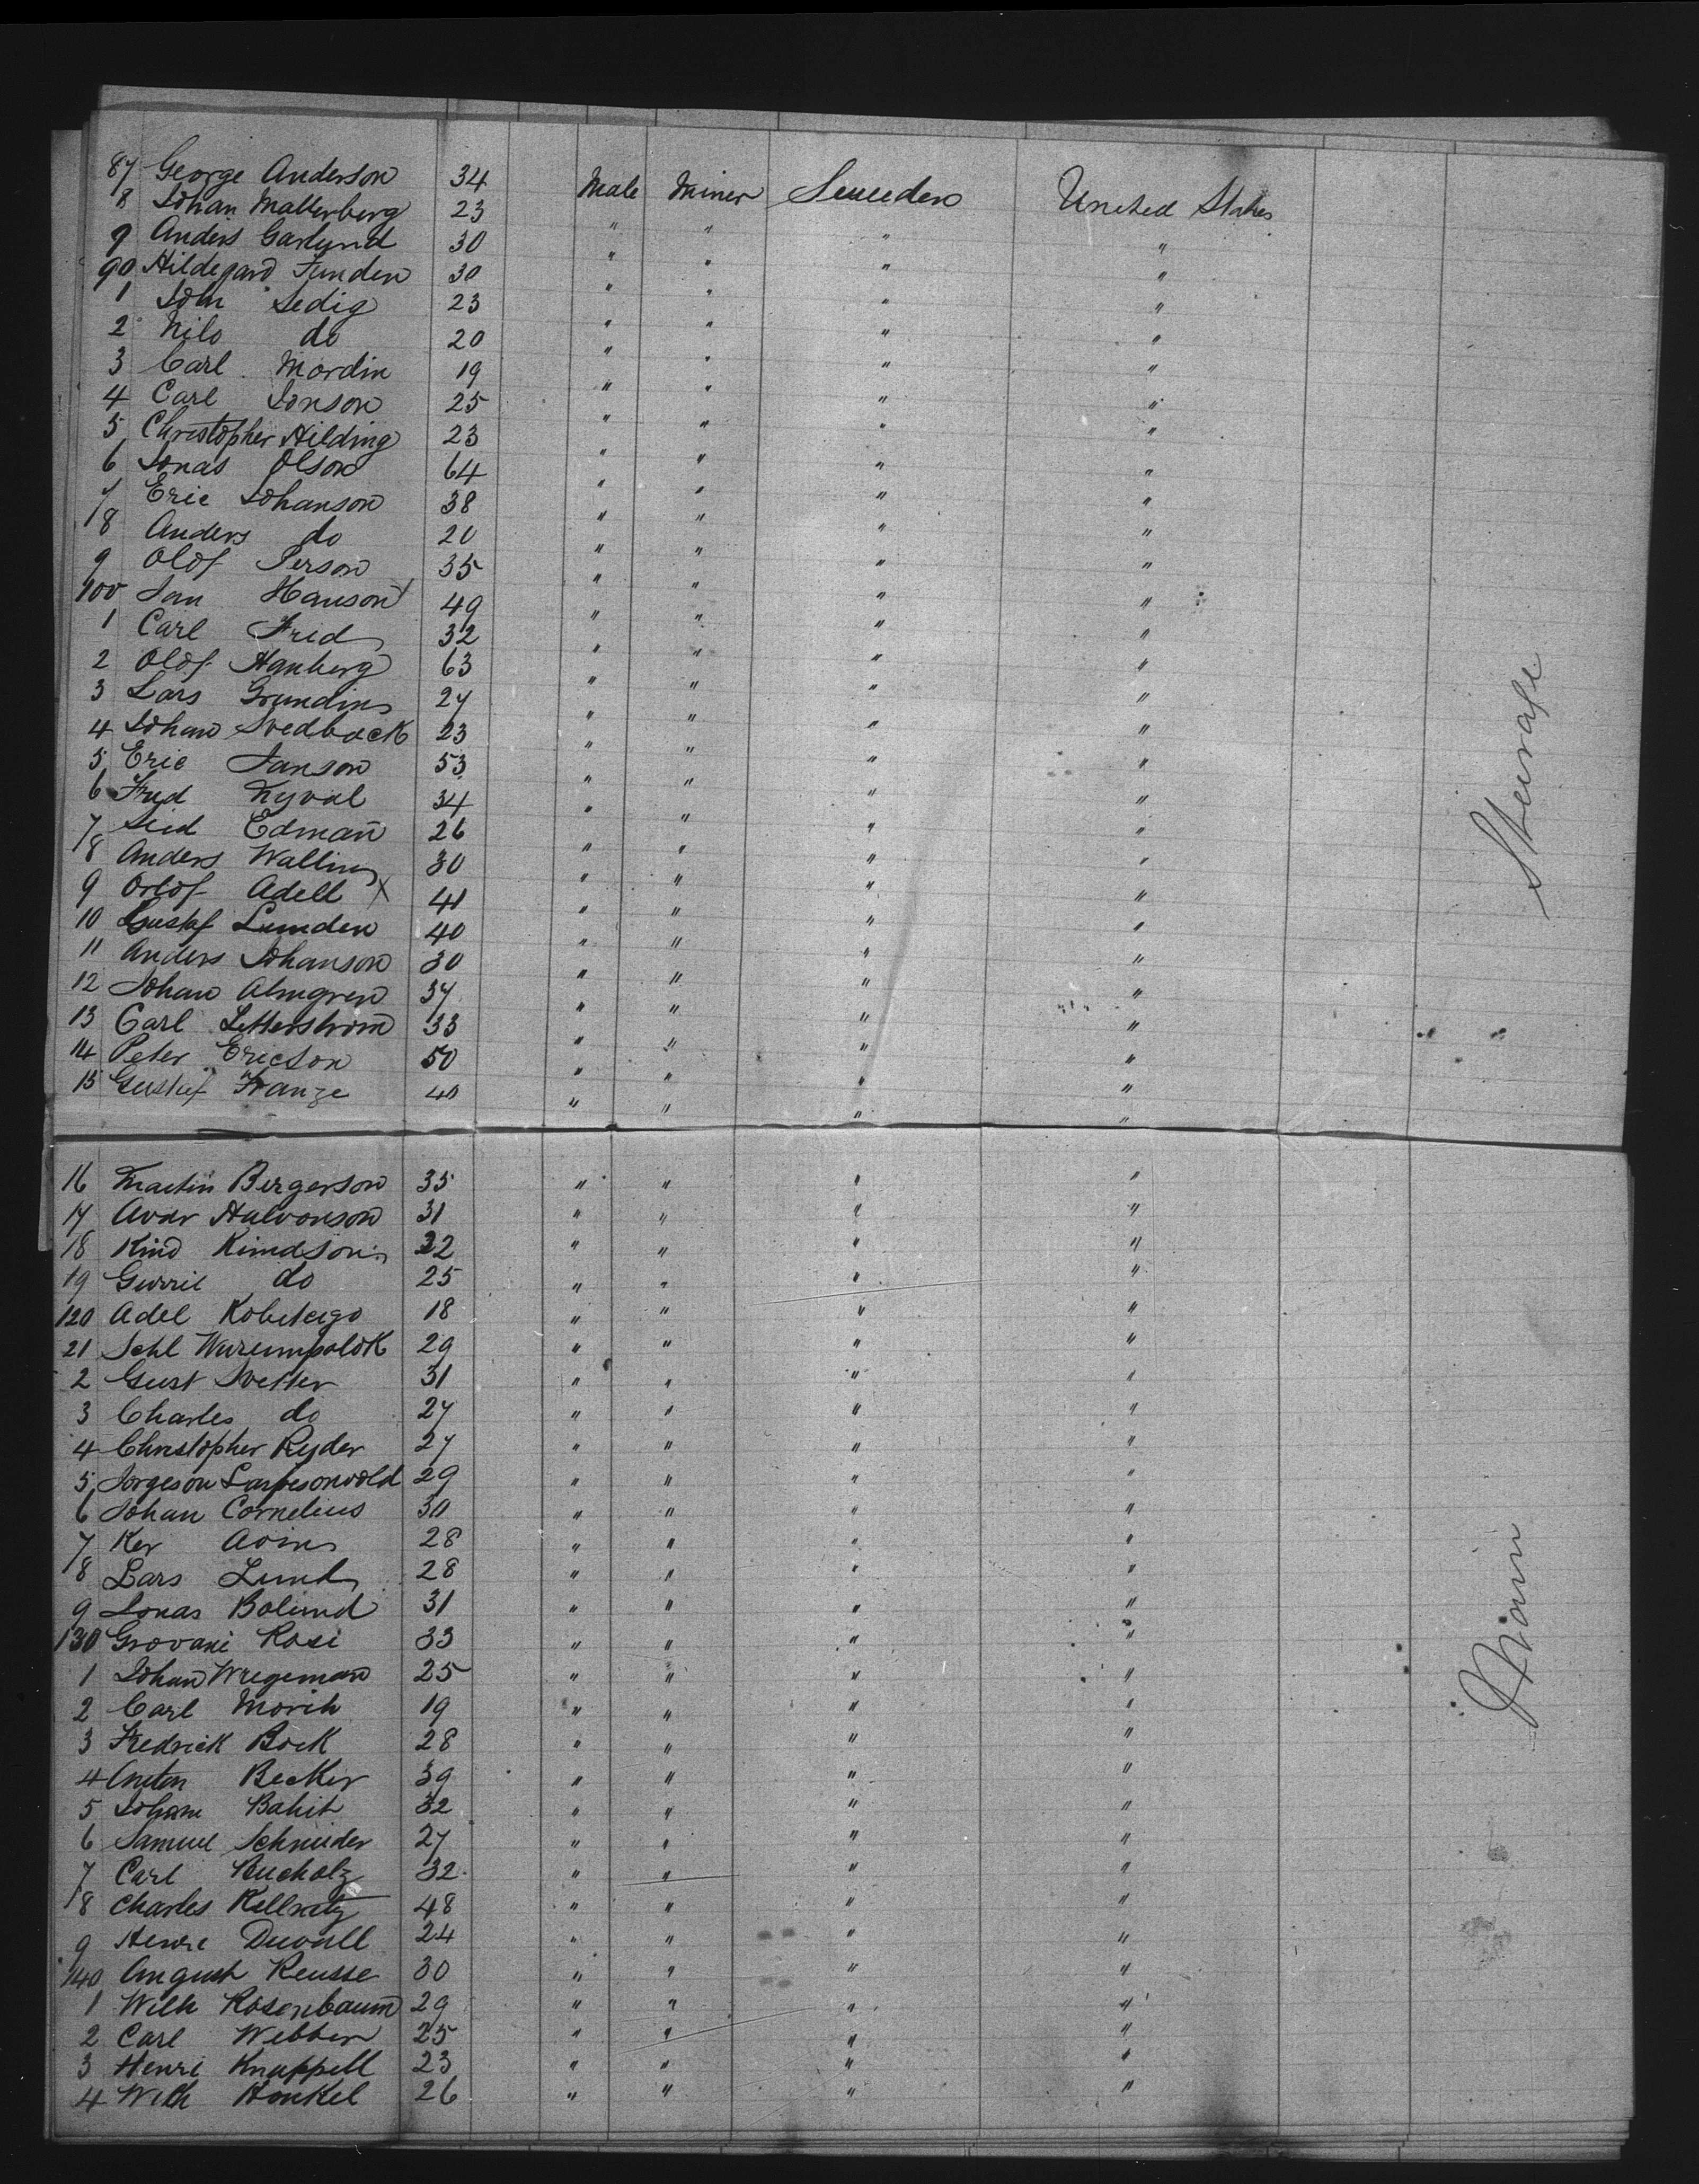 87 George Anderson 34 Male Miner Sweeden United States
8 Johan Mallerberg 23 " " " "
9 Anders Garlund 30 " " " "
90 Hildegard Funden 30 " " " "
1 John Sedig 23 " " " "
2 Nils do 20 " " " "
3 Carl Mordin 19 " " " "
4 Carl Jonson 25 " " " "
5 Christopher Hilding 23 " " " "
6 Jonas Olson 64 " " " "
7 Eric Johanson 38 " " " "
8 Anders do 20 " " " "
9 Olof Person 35 " " " "
100 Jan Hanson 49 " " " "
1 Carl Frid 32 " " " "
2 Olof Hanberg 63 " " " "
3 Lars Grundin 27 " " " "
4 Johan Svedback 23 " " " "
5 Eric Janson 53 " " " "
6 Fred Kyval 34 " " " "
7 Edman 26 " " " "
8 Anders Wallin 30 " " " "
9 Orlof Adell x 41 " " " "
10 Gustaf Lunden 40 " " " "
11 Anders Johanson 30 " " " "
12 Johan Almgren 37 " " " "
13 Carl Setterstrom 33 " " " "
14 Peter Ericson 50 " " " "
15 Gustaf Franze 40 " " " "
Steerage
16 Martin Bergerson 35 " " " "
17 Avar Halvonson 31 " " " "
18 Kind Kimdson 22 " " " "
19 Gurril do 25 " " " "
120 Adel 18 " " " "
21 29 " " " "
2 Gust Svetter 31 " " " "
3 Charles do 27 " " " "
4 Christopher Ryder 27 " " " "
5 Jorgeson 29 " " " "
6 Johan Cornelius 30 " " " "
7 Ker Avin 28 " " " "
8 Lars Lund 28 " " " "
9 Jonas Bolund 31 " " " "
130 Grovani Rosi 33 " " " "
1 Johan Wregeman 25 " " " "
2 Carl Morih 19 " " " "
3 Fredrick Bock 28 " " " "
4 Anton Becker 39 " " " "
5 Johan Bahit 32 " " " "
6 Samuel Schnieder 27 " " " "
7 Carl Bucholz 32 " " " "
8 Charles Kellwitz 48 " " " "
9 Henri Duvall 24 " " " "
140 August Reusse 30 " " " "
1 Wilh Rosenbaum 29 " " " "
2 Carl Webber 25 " " " "
3 Henri Knappell 23 " " " "
4 Wilh Honkel 26 " " " "
Main